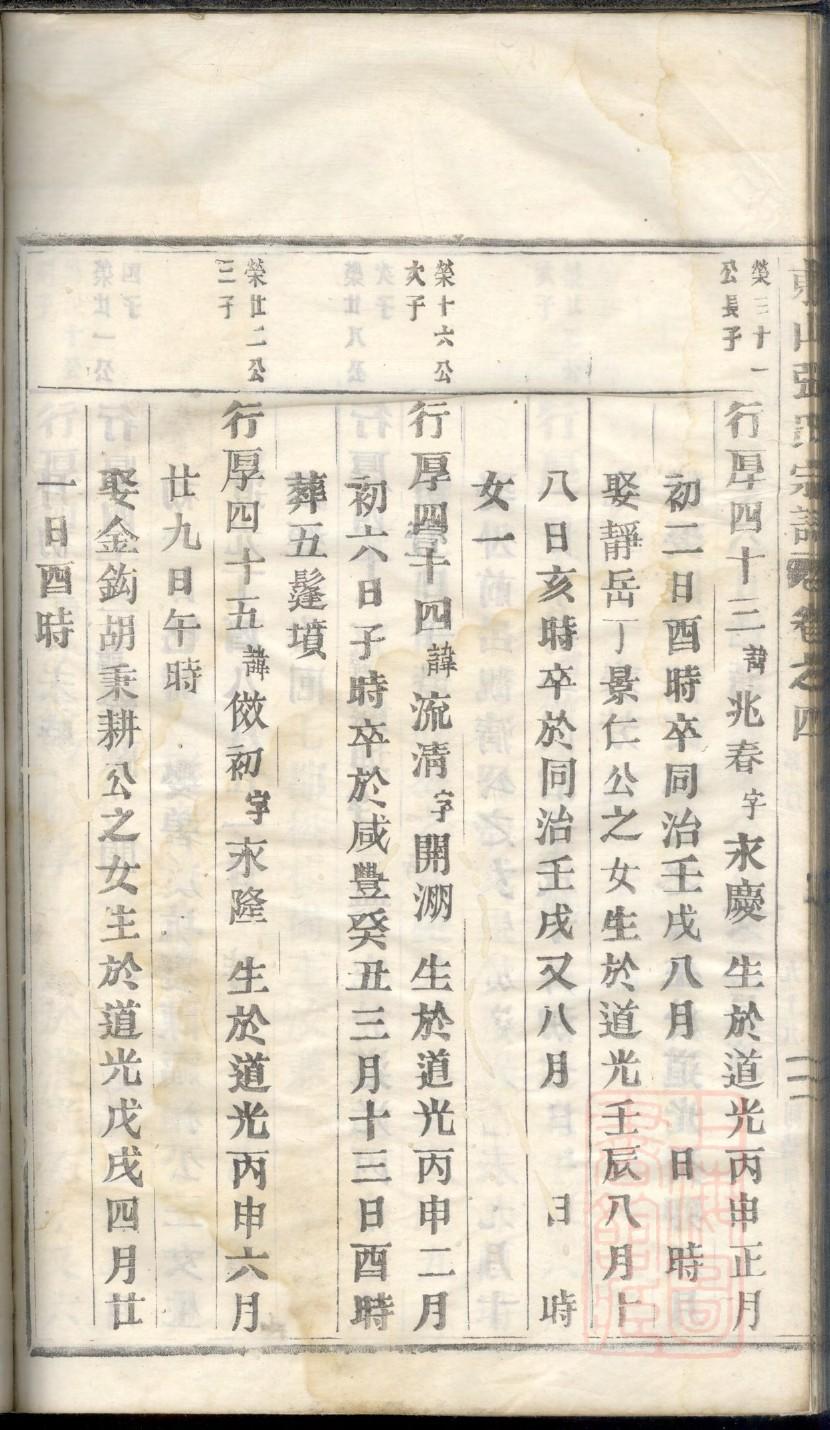 東山張氏宗譜卷之四
榮三十一
公長子
行厚四十三諱兆春字永慶 生於道光丙申正月
初二日酉時卒同治壬戌八月 日 時
娶靜岳丁景仁公之女生於道光壬辰八月十
八日亥時卒於同治壬戌又八月 日 時
女一
榮十六公
次子
行厚四十四諱流清字開溯 生於道光丙申二月
初六日子時卒於咸豐癸丑三月十三日酉時
葬五髼墳
榮廿二公
三子
行厚四十五諱傚初字永隆 生於道光丙申六月
廿九日午時
娶金鈎胡秉耕公之女生於道光戊戌四月廿
一日酉時